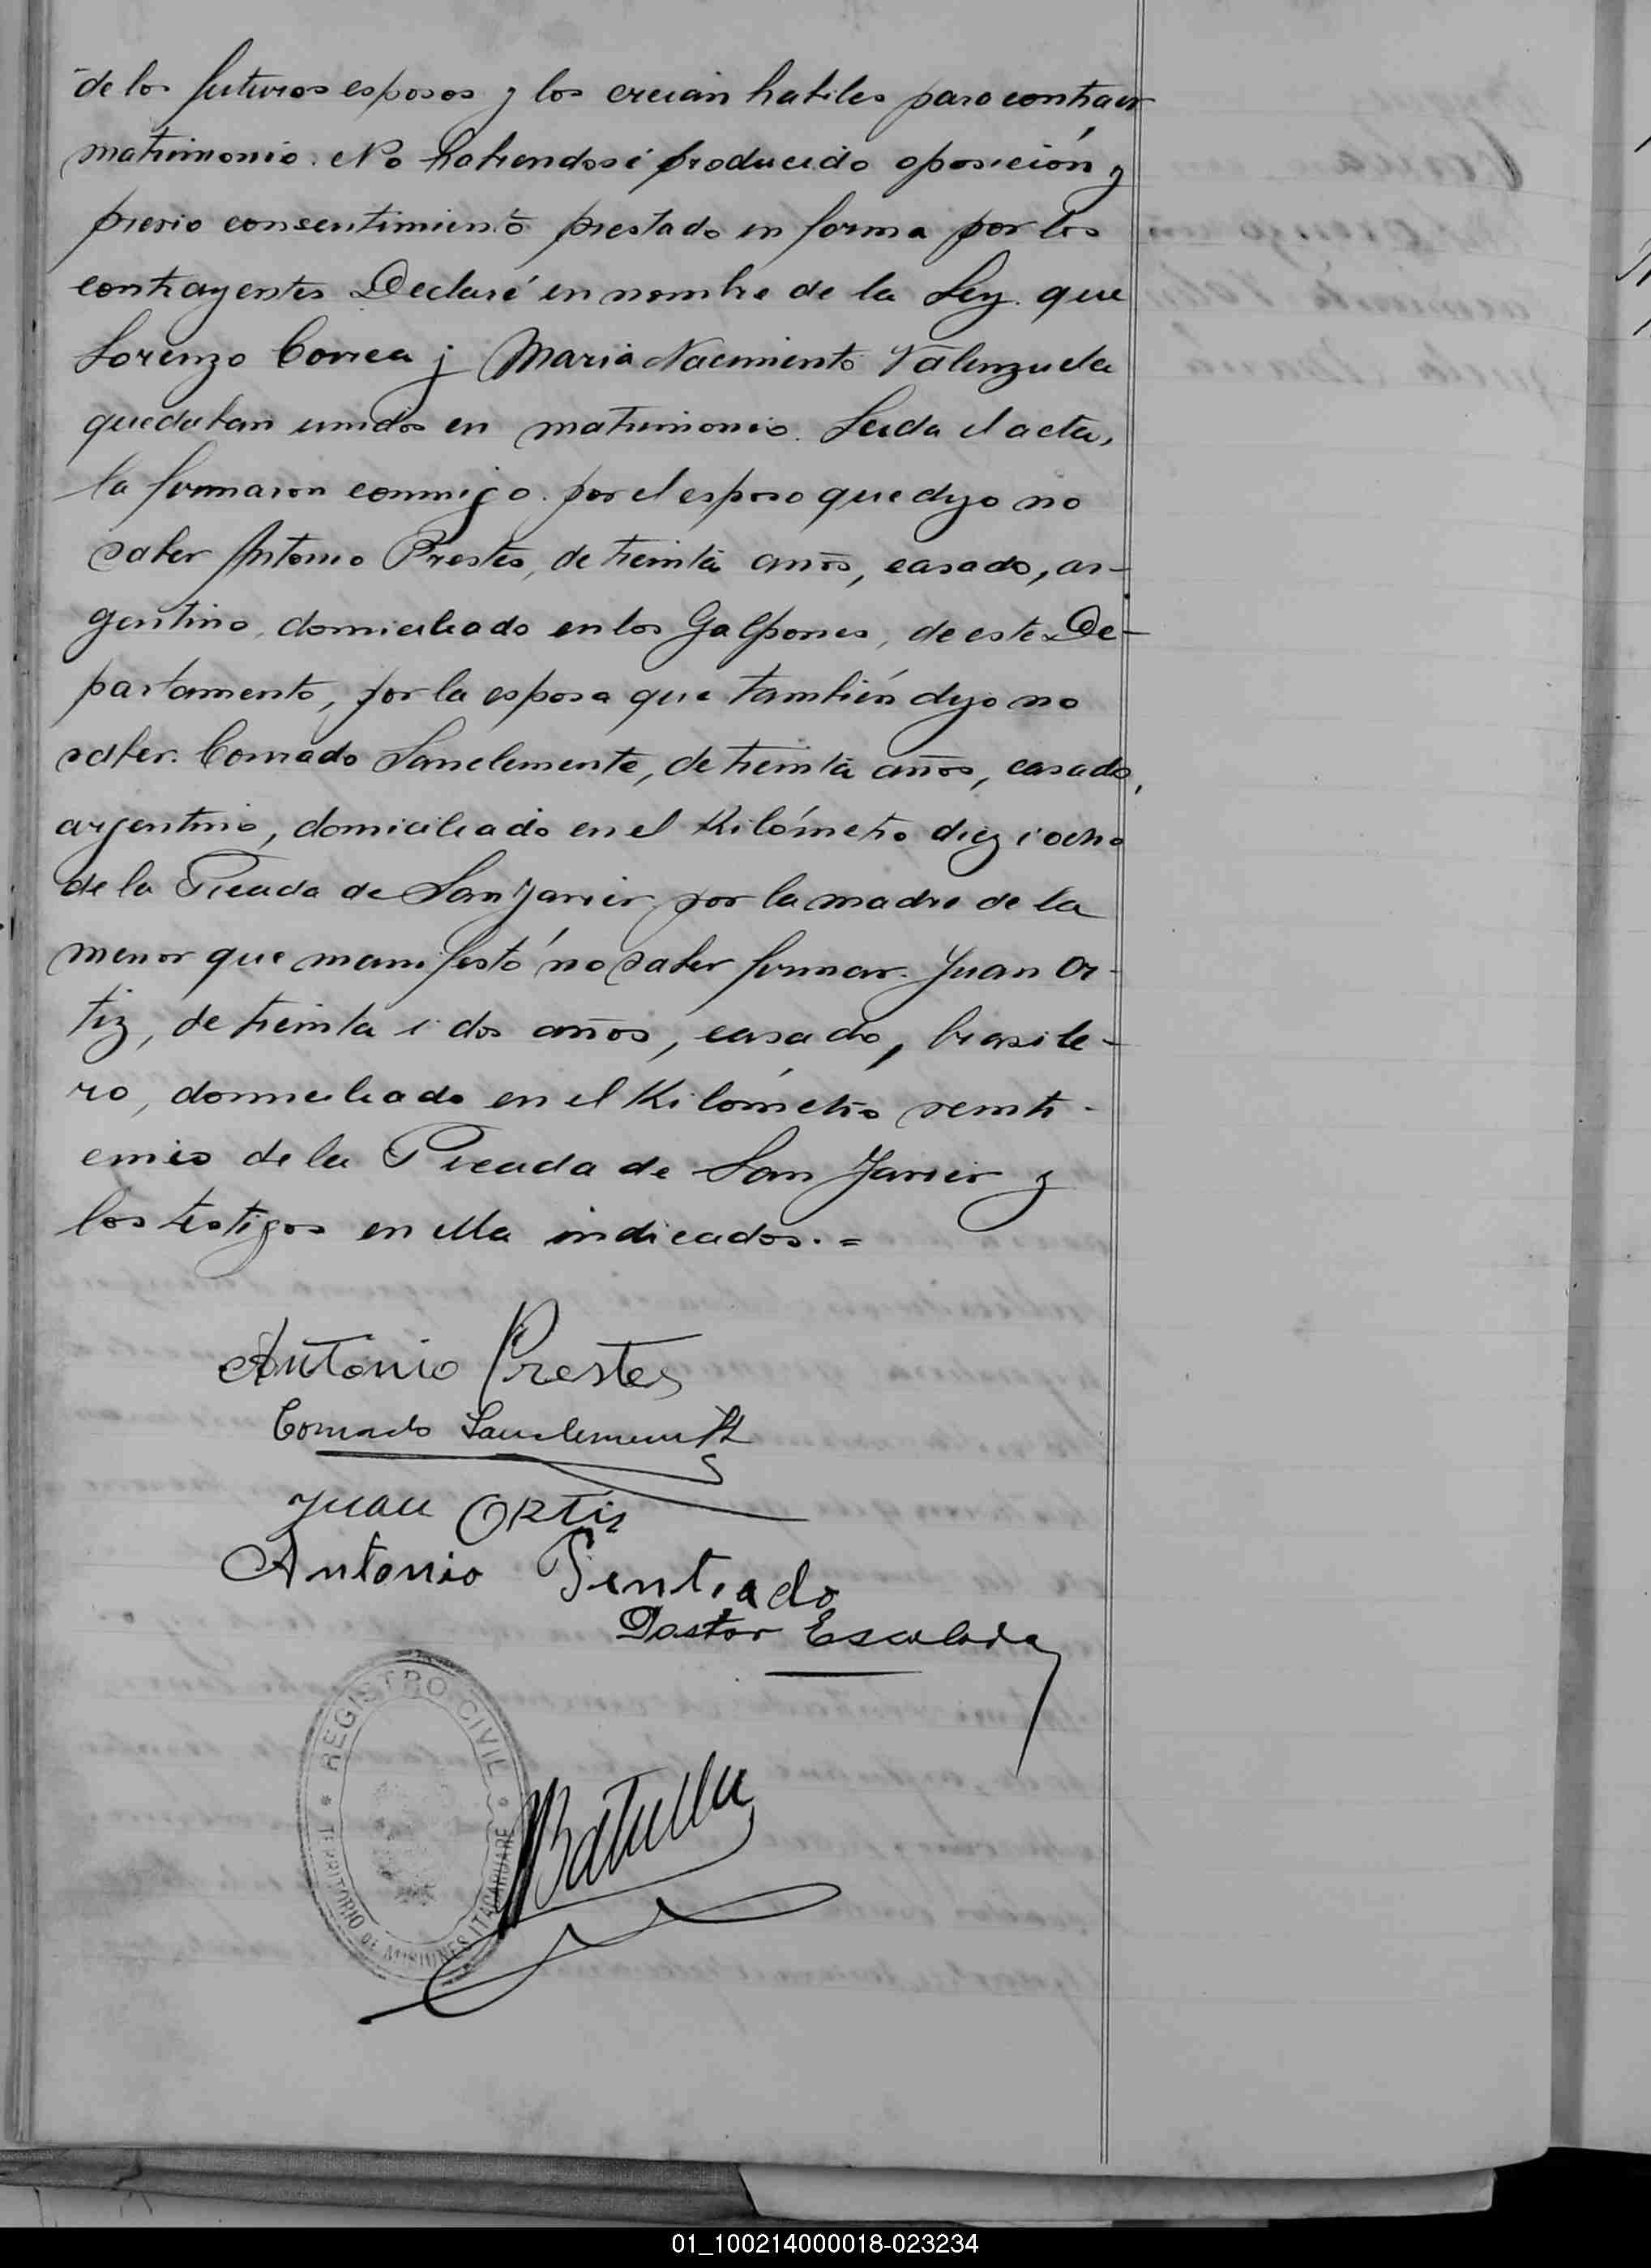 de los futuros esposos y los creian habiles para contraer
matrimonio. No habiendose producido oposición y
previo consentimiento prestado en forma por los
contrayentes Declaré en nombre de la Ley que
Lorenzo Correa y Maria Nacimiento Valenzuela
quedaban unidos en matrimonio. Leida el acta,
la firmaron conmigo. por el esposo que dijo no
saber Antonio Prestes, de treinta años, casado, ar-
gentino, domiciliado en los Galpones, de este De-
partamento, por la esposa que también dijo no
saber. Conrado Sanclemente, de treinta años, casado,
argentino, domiciliado en el Kilómetro diez i ocho
de la Picada de San Javier por la madre de la
menor que manifestó no saber firmar. Juan Or-
tiz, de treinta i dos años, casado, brasile-
ro, domiciliado en el Kilómetro veinti-
cinco de la Picada de San Javier y
los testigos en ella indicados.=
Antonio Prestes
Conrado Sanclemente
Juan Ortiz
Antonio
Pastor Escalada
REGISTRO CIVIL
TERRITORIO DE MISIONES ITACARUARE
01_100214000018-023234